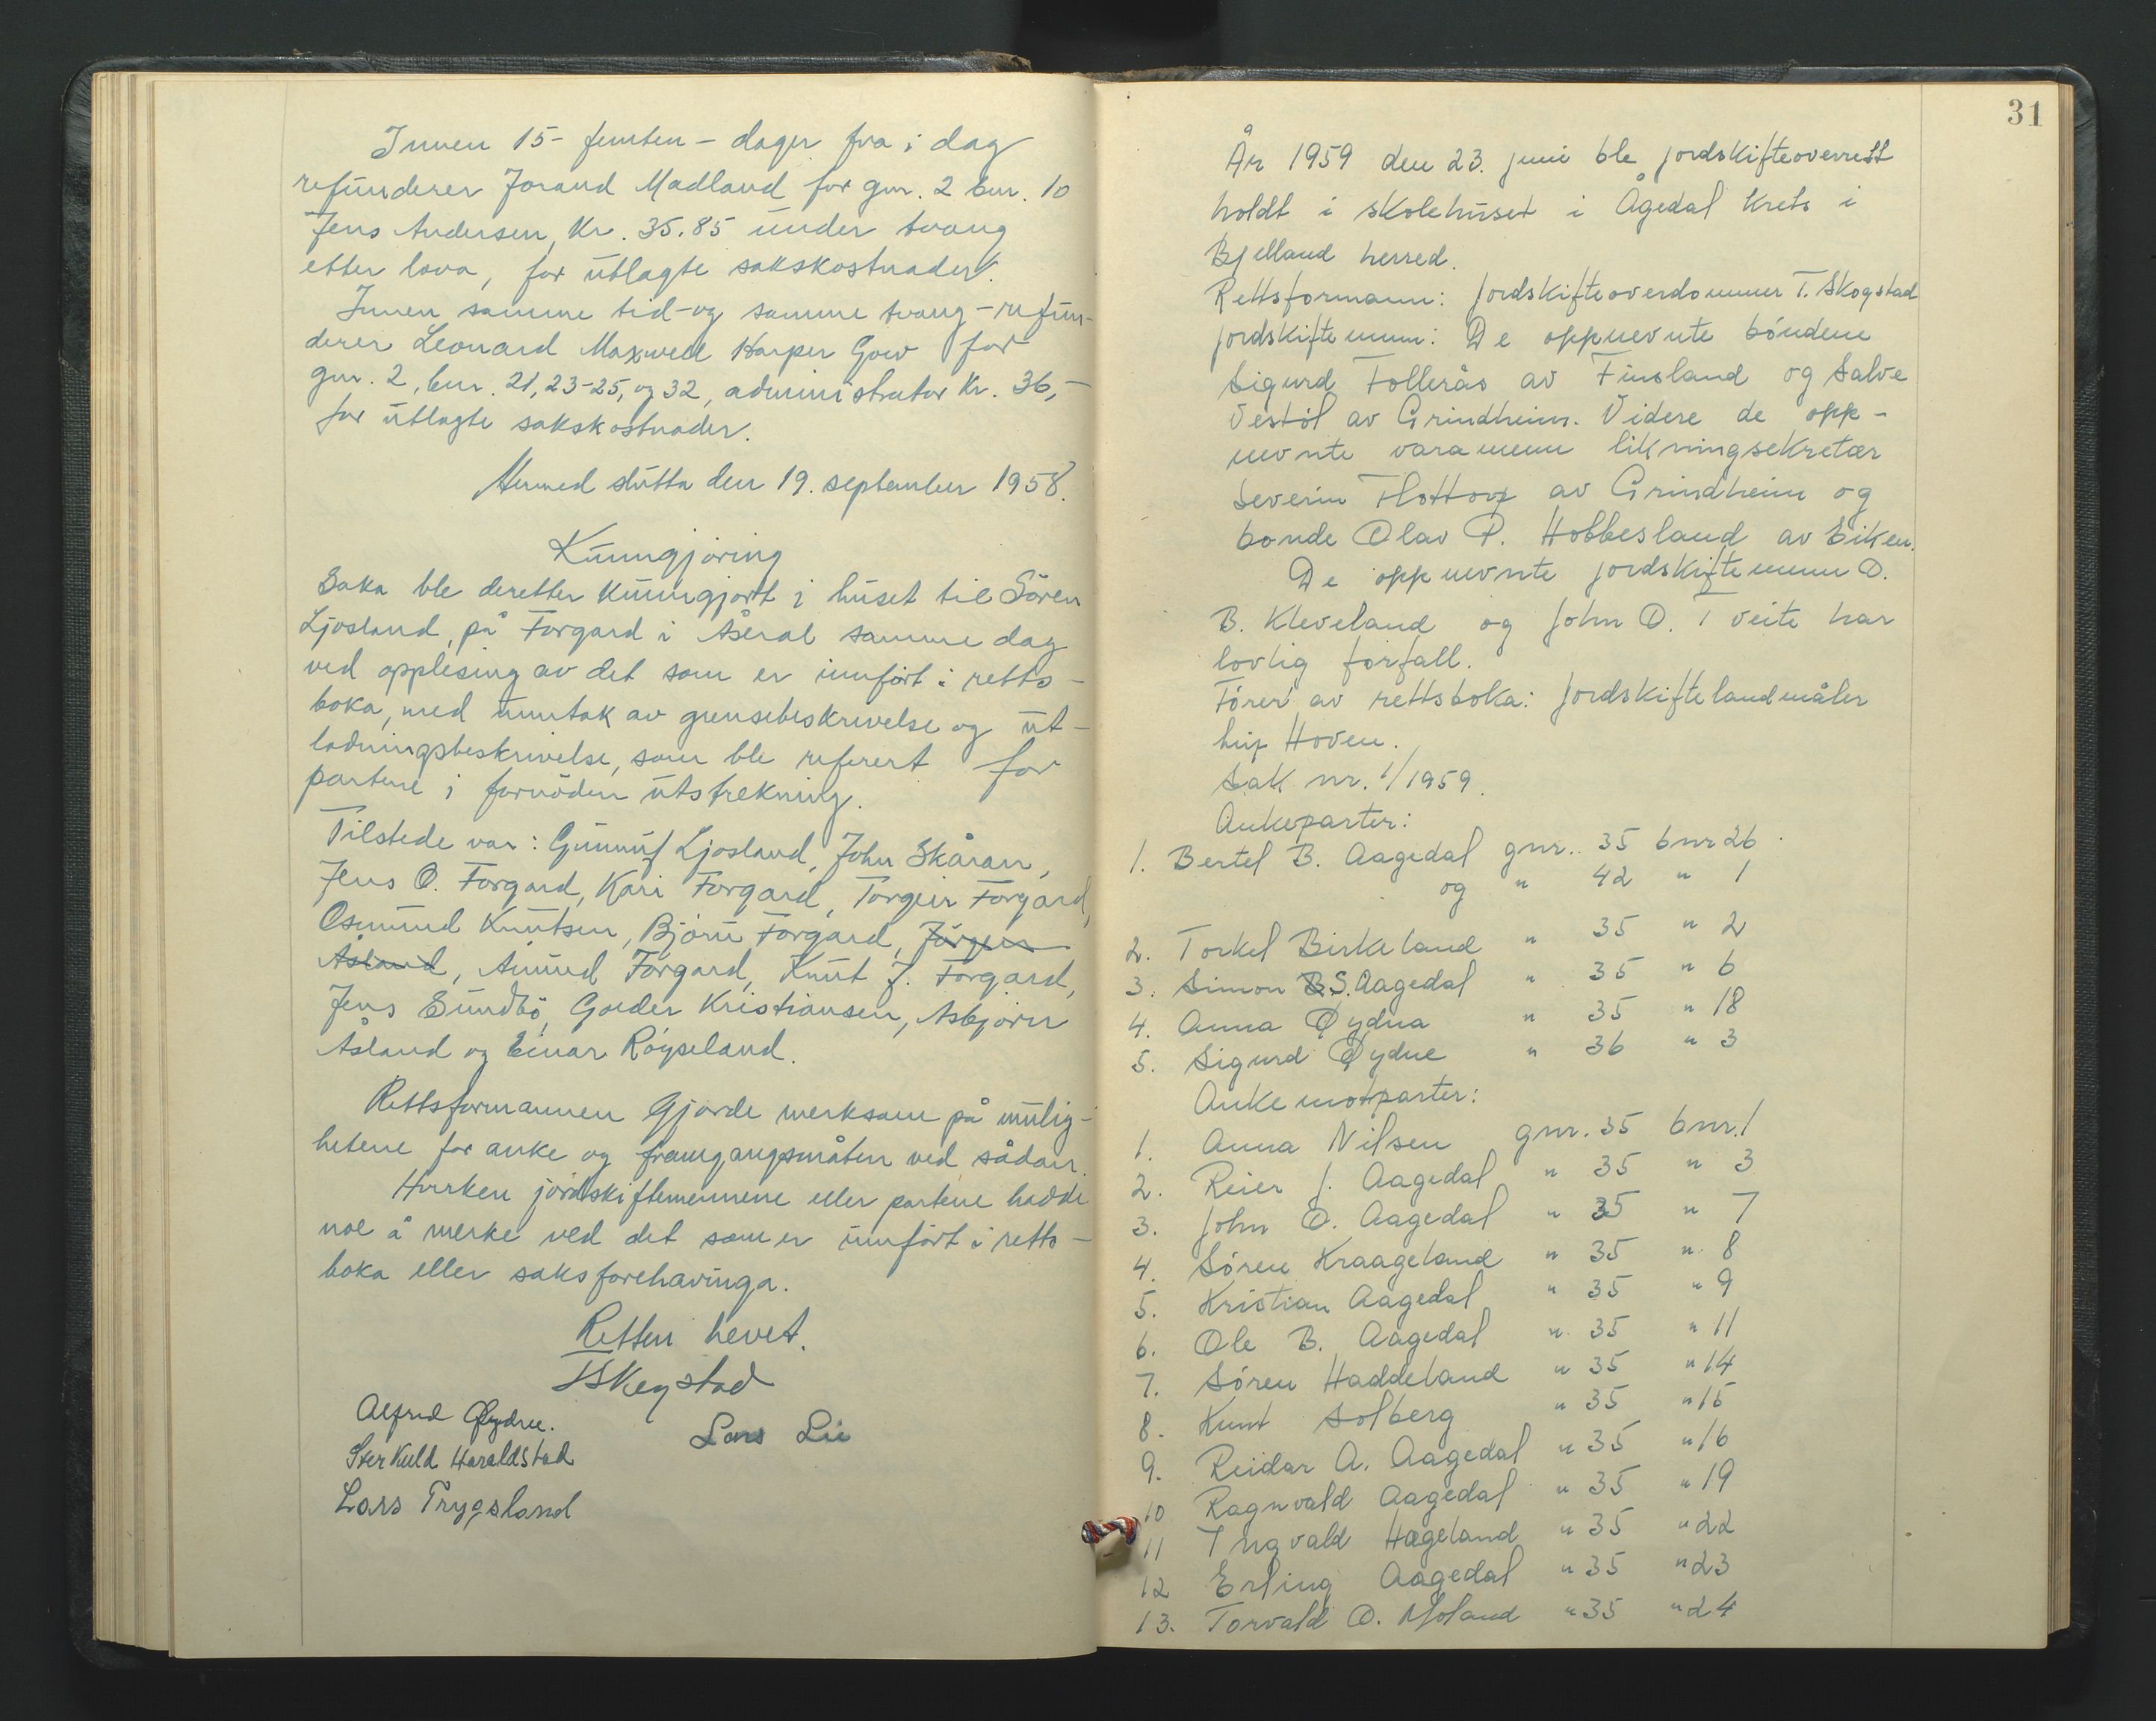 Innen 15- femten - dager fra i dag
refunderer Jorand Madland for gnr. 2 bnr. 10
Jens Andersen, Kr. 35.85 under tvang
etter lova, for utlagte sakskostnader.
Innen samme tid - og samme tvang - refun-
derer Leonard Maxwell Harper Gow for
gnr. 2, bnr. 21, 23-25, og 32, administrator Kr. 36,-
for utlagte sakskostnader.
Hermed slutta den 19. september 1958.
Kunngjøring
Saka ble deretter kunngjort i huset til Sören
Ljosland, på Forgard i Åseral samme dag
ved opplesing av det som er innført i retts-
boka, med unntak av grensebeskrivelse og ut-
lodningsbeskrivelse, som ble referert for
partene i fornöden utstrekning.
Tilstede var: Gunnuf Ljosland, John Skåran,
Jens O. Forgard, Kari Forgard, Torgeir Forgard,
Osmund Knutsen, Björn Forgard, Jörgen
Åsland, Ånund Forgard, Knut J. Forgard,
Jens Sundbö, Goeder Kristiansen, Asbjørn
Åsland og Einar Röyseland.
Rettsformannen gjorde merksam på mulig-
hetene for anke og framgangsmåten ved sådan.
Hverken jordskiftemennene eller partene hadde
noe å merke ved det som er innført i retts-
boka eller saksforehavinga.
Retten hevet.
T Skogstad
Alfred Øydne.
Lars Lie
Sterkuld Haraldstad
Lars Trygsland
31
År 1959 den 23. juni ble jordskifteoverrett
holdt i skolehuset i Ågedal krets i
Bjelland herred.
Rettsformann: Jordskifteoverdommer T. Skogstad
Jordskiftemenn: De oppnevnte bóndene
Sigurd Follerås av Finsland og Salve
Vestöl av Grindheim. Videre de opp-
nevnte varamenn likningsekretær
Severin Flottorp av Grindheim og
bonde Olav P. Hobbesland av Eiken.
De oppnevnte jordskiftemenn O.
B. Kleveland og John O. Tveite har
lovlig forfall.
Fórer av rettsboka: Jordskiftelandmåler
Leif Hoven.
Sak nr. 1/1959.
Ankeparter:
1. Bertel B. Aagedal gnr. 35 bnr 26
og " 42 " 1
2. Torkel Birkeland " 35 " 2
3. Simon S. Aagedal " 35 " 6
4. Anna Øydna " 35 " 18
5. Sigurd Øydne " 36 " 3
Ankemotparter:
1. Anna Nilsen gnr. 35 bnr. 1
2. Reier J. Aagedal " 35 " 3
3. John O. Aagedal " 35 " 7
4. Sóren Kraageland " 35 " 8
5. Kristian Aagedal " 35 " 9
6. Ole B. Aagedal " 35 " 11
7. Sóren Haddeland " 35 " 14
8. Knut Solberg " 35 " 15
9. Reidar A. Aagedal " 35 " 16
10 Ragnvald Aagedal " 35 " 19
11 Ingvald Hægeland " 35 " 22
12 Erling Aagedal " 35 " 23
13. Torvald O. Moland " 35 " 24